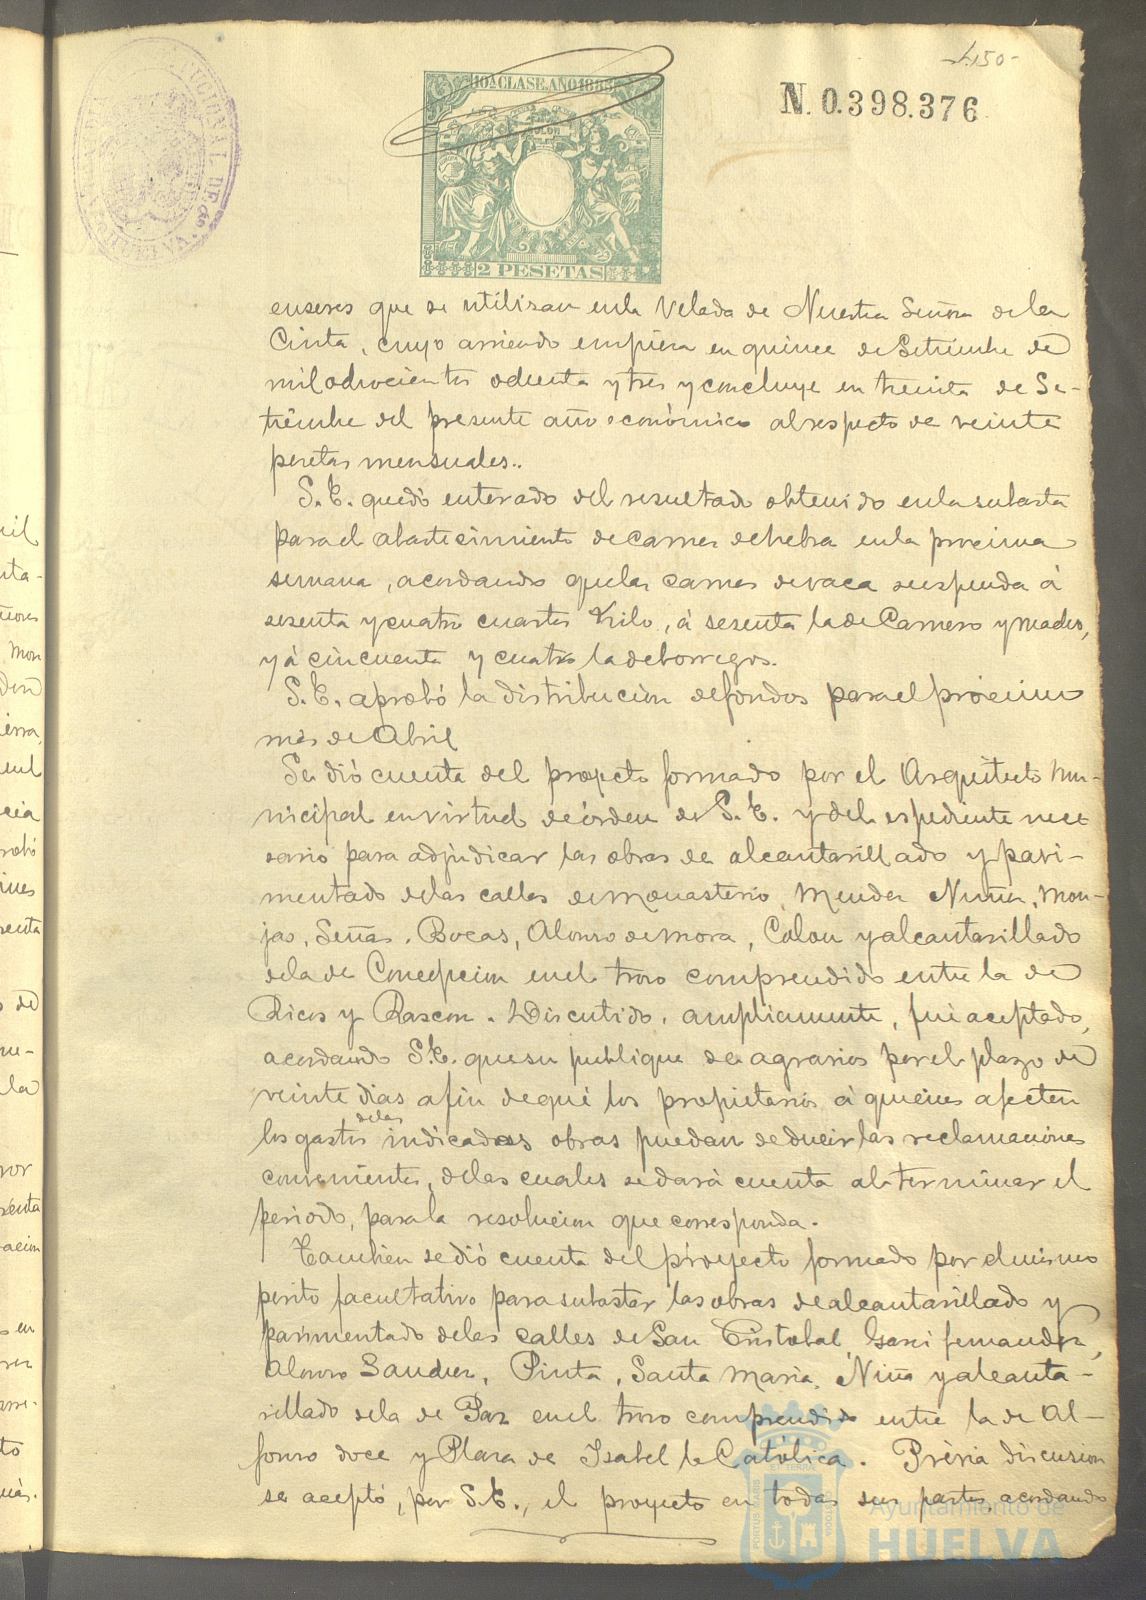 150-
N. 0.398.376
10ª CLASE. AÑO 188
COLON
2 PESETAS
enseres que se utilizan en la Velada de Nuestra Señora de la
Cinta, cuyo arriendo empieza en quince de Setiembre de
mil ochocientos ochenta y tres y concluye en treinta de Se-
tiembre del presente año económico al respecto de veinte
pesetas mensuales.
S. E. quedó enterado del resultado obtenido en la subasta
para el abastecimiento de carnes de hebra en la procsima
semana, acordando que las carnes de vaca se espenda á
sesenta y cuatro cuartos Kilo, á sesenta la de Carnero y machos,
y á cincuenta y cuatro la de borregos.
S. E. aprobó la distribución de fondos para el próximo
mes de Abril
Se dió cuenta del proyecto formado por el Arquitecto mu-
nicipal en virtud de órden de S. E. y del espediente nece
sario para adjudicar las obras de alcantarillado y pavi-
mentado de las calles de Monasterio, Mendez Nuñez, Mon-
jas, Señas, Bocas, Alonso de Mora, Colon y alcantarillado
de la de Concepcion en el trozo comprendido entre la de
Ricos y Rascon. Discutido, ampliamente, fué aceptado,
acordando S. E. que se publique de agravios por el plazo de
veinte dias afin de qué los propietarios á quienes afecten
los gastos de las indicadas obras puedan deducir las reclamaciones
convenientes, de las cuales se dará cuenta al terminar el
periodo, para la resolucion que corresponda.
Tambien se dió cuenta del proyecto formado por el mismo
perito facultativo para subastar las obras de alcantarillado y
pavimentado de las calles de San Cristobal, Garci fernandez,
Alonso Sanchez, Pinta, Santa Maria, Niña y alcanta-
rillado de la de Paz en el trozo comprendido entre la de Al-
fonso doce y Plaza de Isabel la Católica. Prévia discusion
se aceptó, por S. E., el proyecto en todas sus partes, acordando
Ayuntamiento de
HUELVA